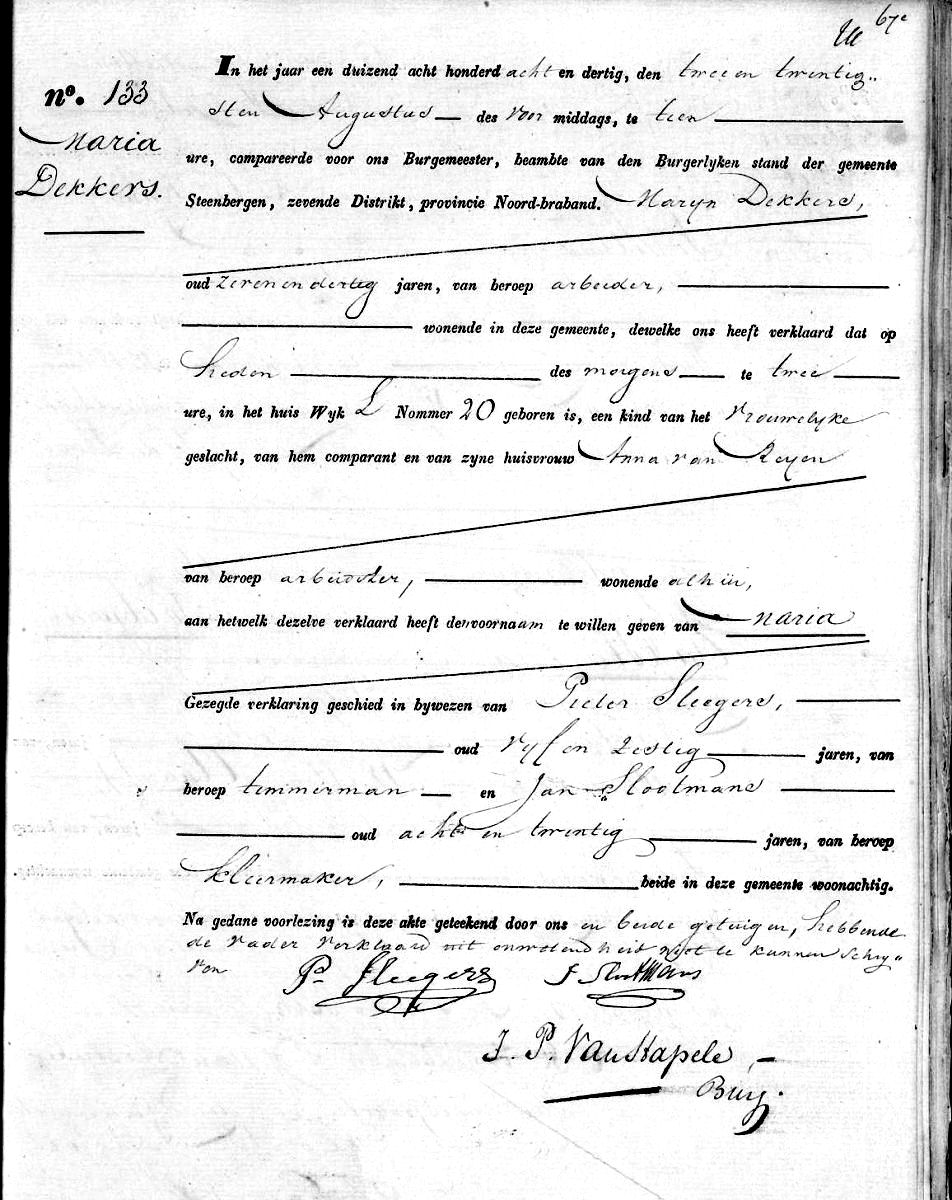 67e
In het jaar een duizend acht honderd acht en dertig, den twee en twentig„
nº. 133
sten Augustus des voor middags, te tien
Maria
ure, compareerde voor ons Burgemeester, beambte van den Burgerlyken stand der gemeente
Dekkers.
Steenbergen, zevende Distrikt, provincie Noord-braband. Maryn Dekkers,
oud zevenendertig jaren, van beroep arbeider,
wonende in deze gemeente, dewelke ons heeft verklaard dat op
heden des morgens te twee
ure, in het huis Wyk L Nommer 20 geboren is, een kind van het vrouwelyke
geslacht, van hem comparant en van zyne huisvrouw Anna van Reyen
van beroep arbeidster, wonende alhier,
aan hetwelk dezelve verklaard heeft den voornaam te willen geven van Maria
Gezegde verklaring geschied in bywezen van Pieter Sleegers,
oud vyf en zestig jaren, van
beroep timmerman en Jan Slootmans
oud acht en twentig jaren, van beroep
kleermaker, beide in deze gemeente woonachtig.
Na gedane voorlezing is deze akte geteekend door ons en beide getuigen, hebbende
de vader verklaard uit onwetendheit niet te kunnen schry„
ven
P. Sleegers J Slootmans
J. P. Van Kapele,
Burg.